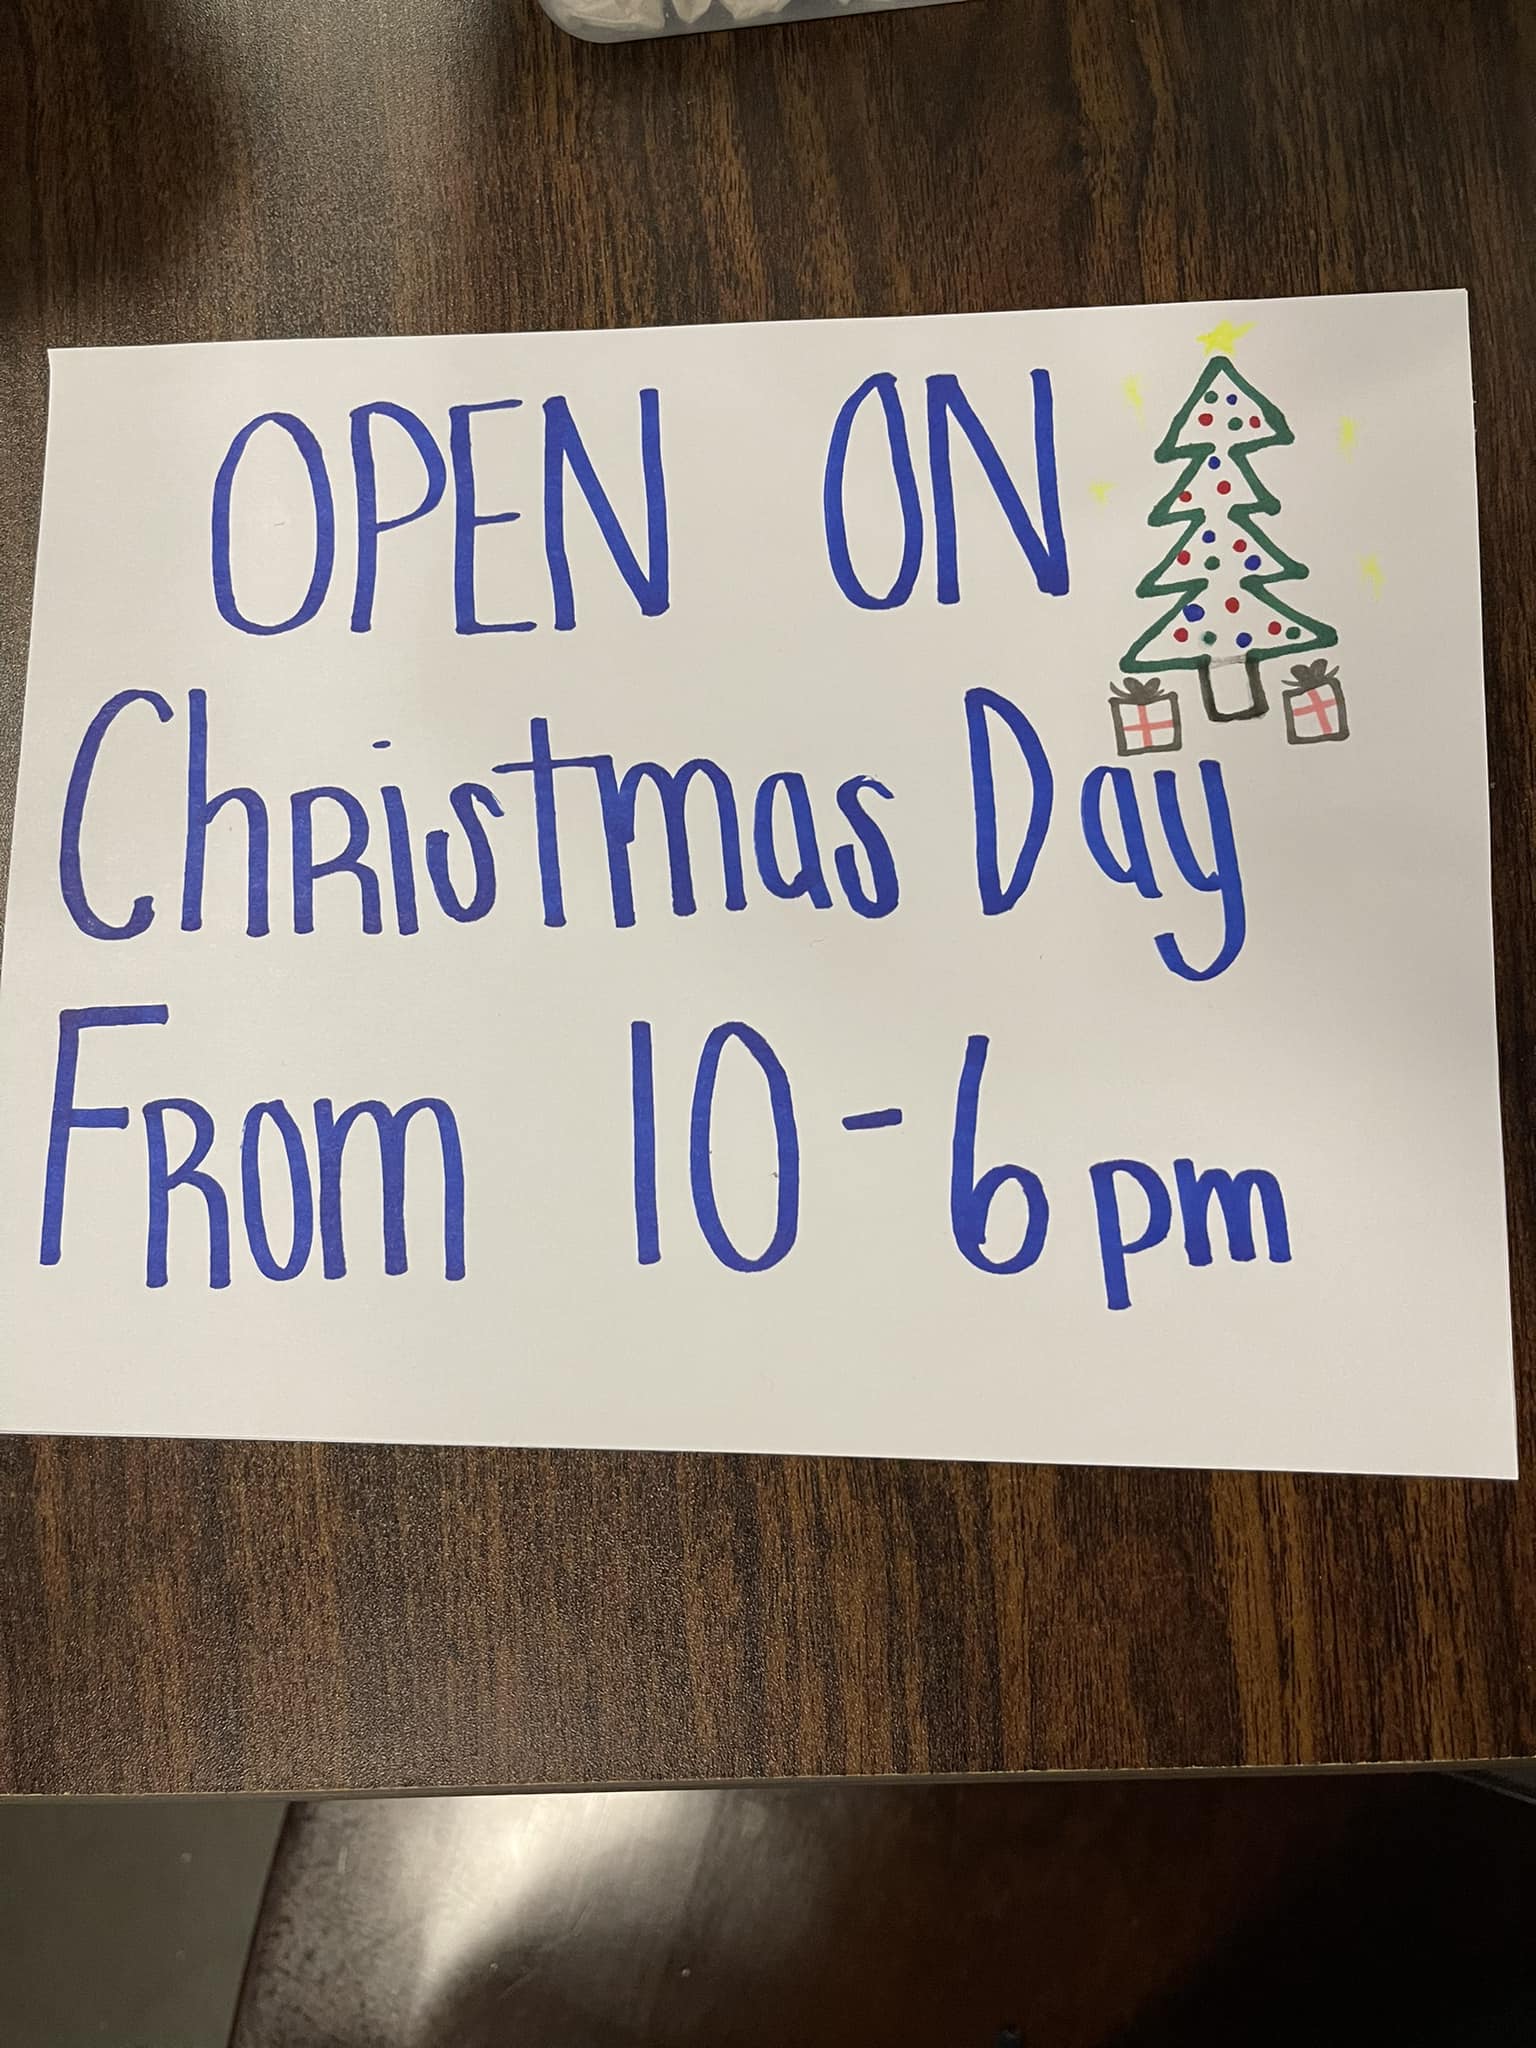 OPEN ON
ChRistmas Day
FRom 10-6pm